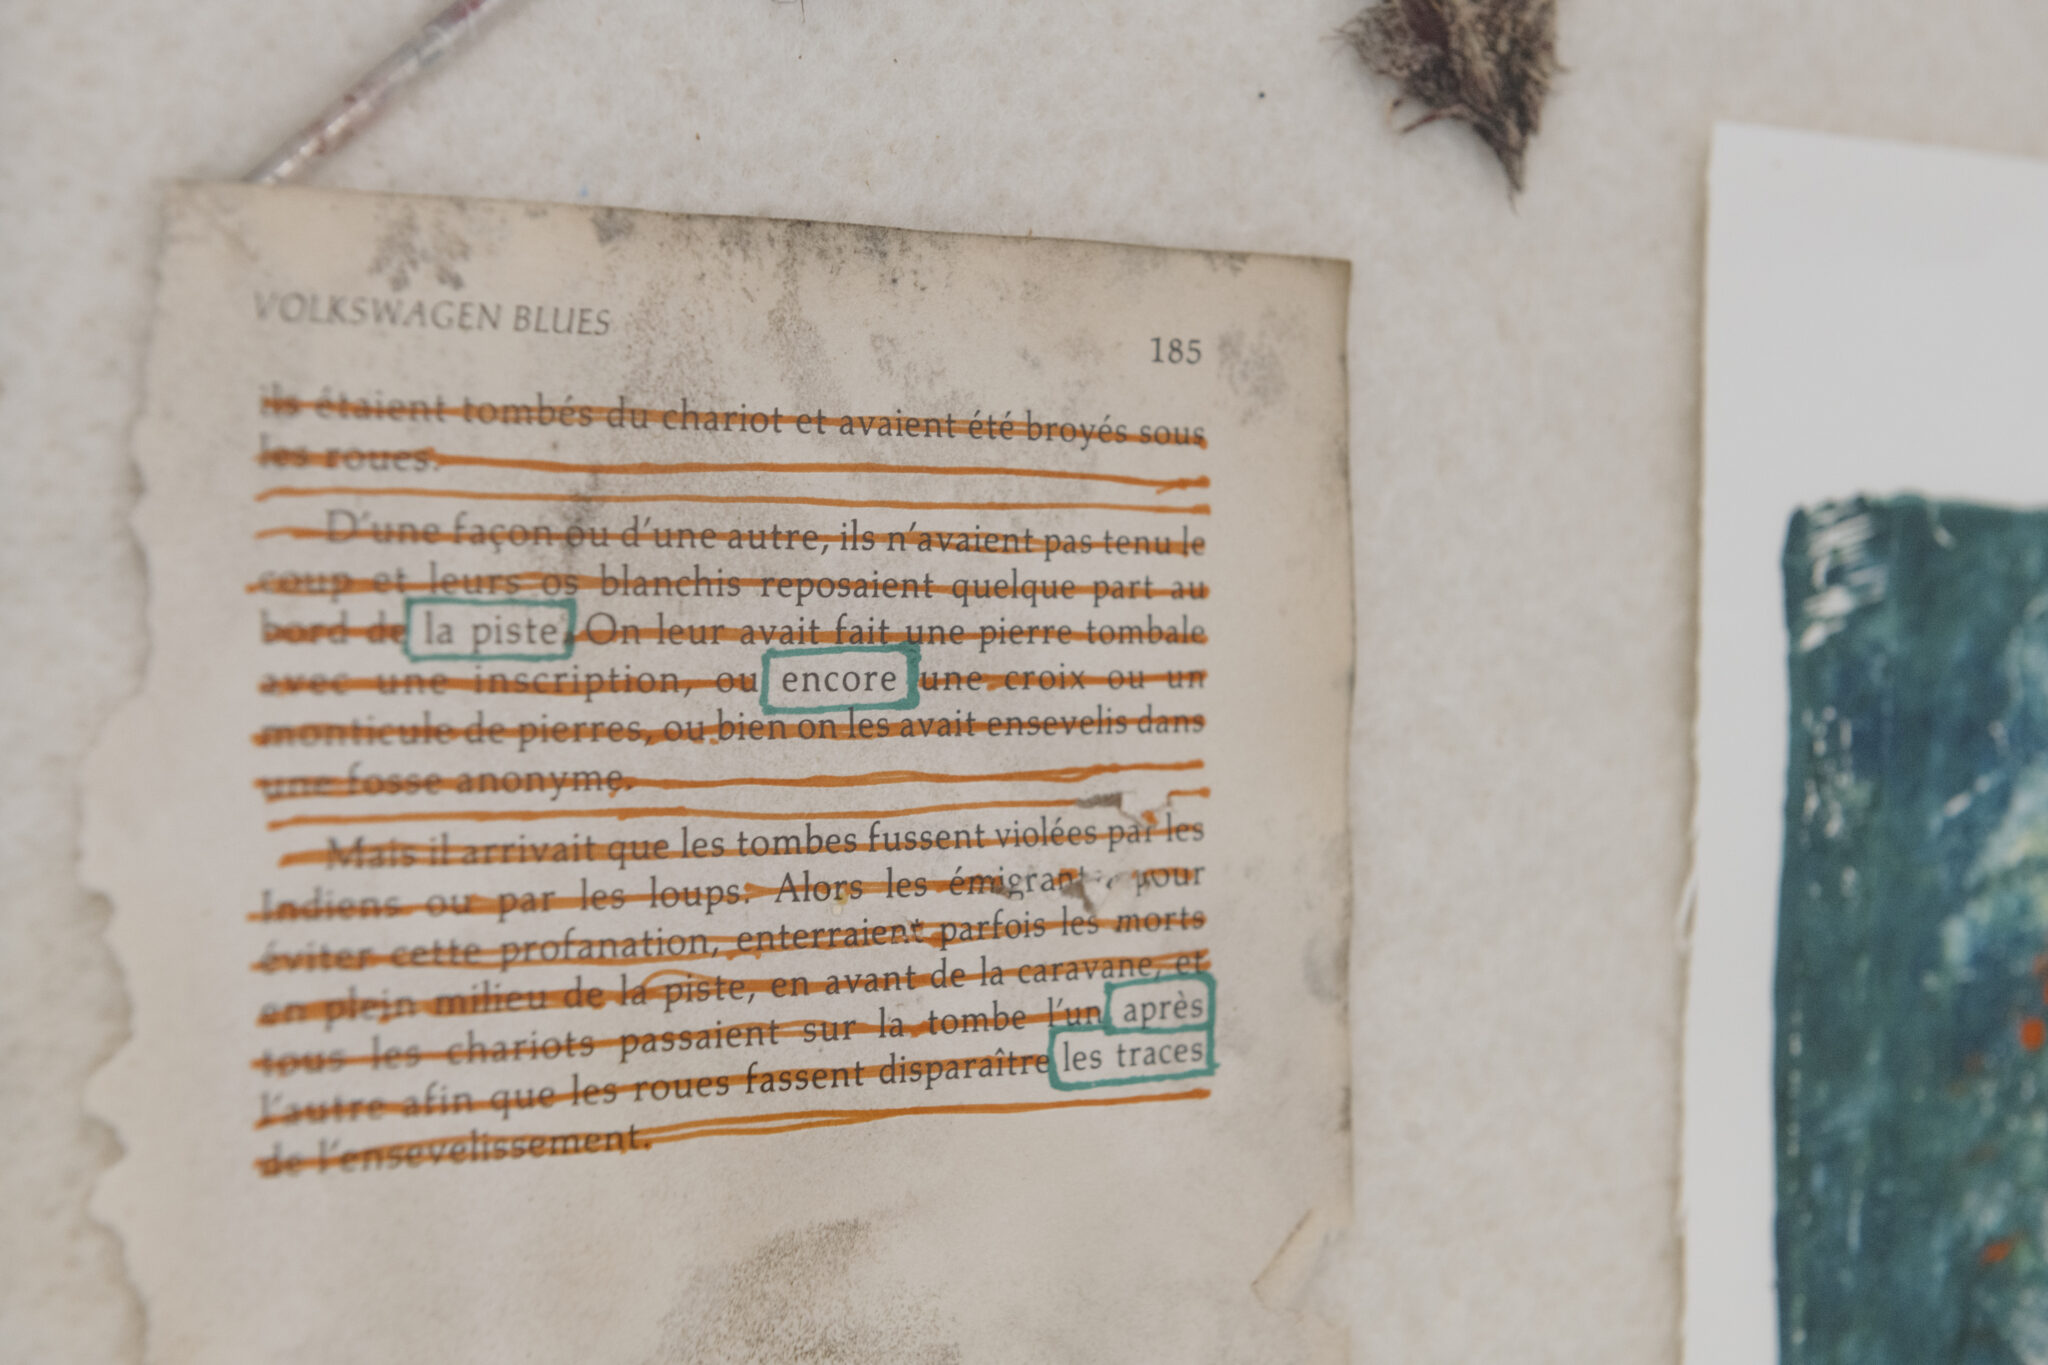 VOLKSWAGEN BLUES
185
ils étaient tombés du chariot et avaient été broyés sous
les roues.
D'une façon ou d'une autre, ils n'avaient pas tenu le
coup et leurs os blanchis reposaient quelque part au
bord de la piste. On leur avait fait une pierre tombale
avec une inscription, ou encore une croix ou un
monticule de pierres, ou bien on les avait ensevelis dans
une fosse anonyme.
Mais il arrivait que les tombes fussent violées par les
Indiens ou par les loups. Alors les pour
éviter cette profanation, enterraient parfois les morts
en plein milieu de la piste, en avant de la caravane, et
tous les chariots passaient sur la tombe l'un après
l'autre afin que les roues fassent disparaître les traces
de l'ensevelissement.